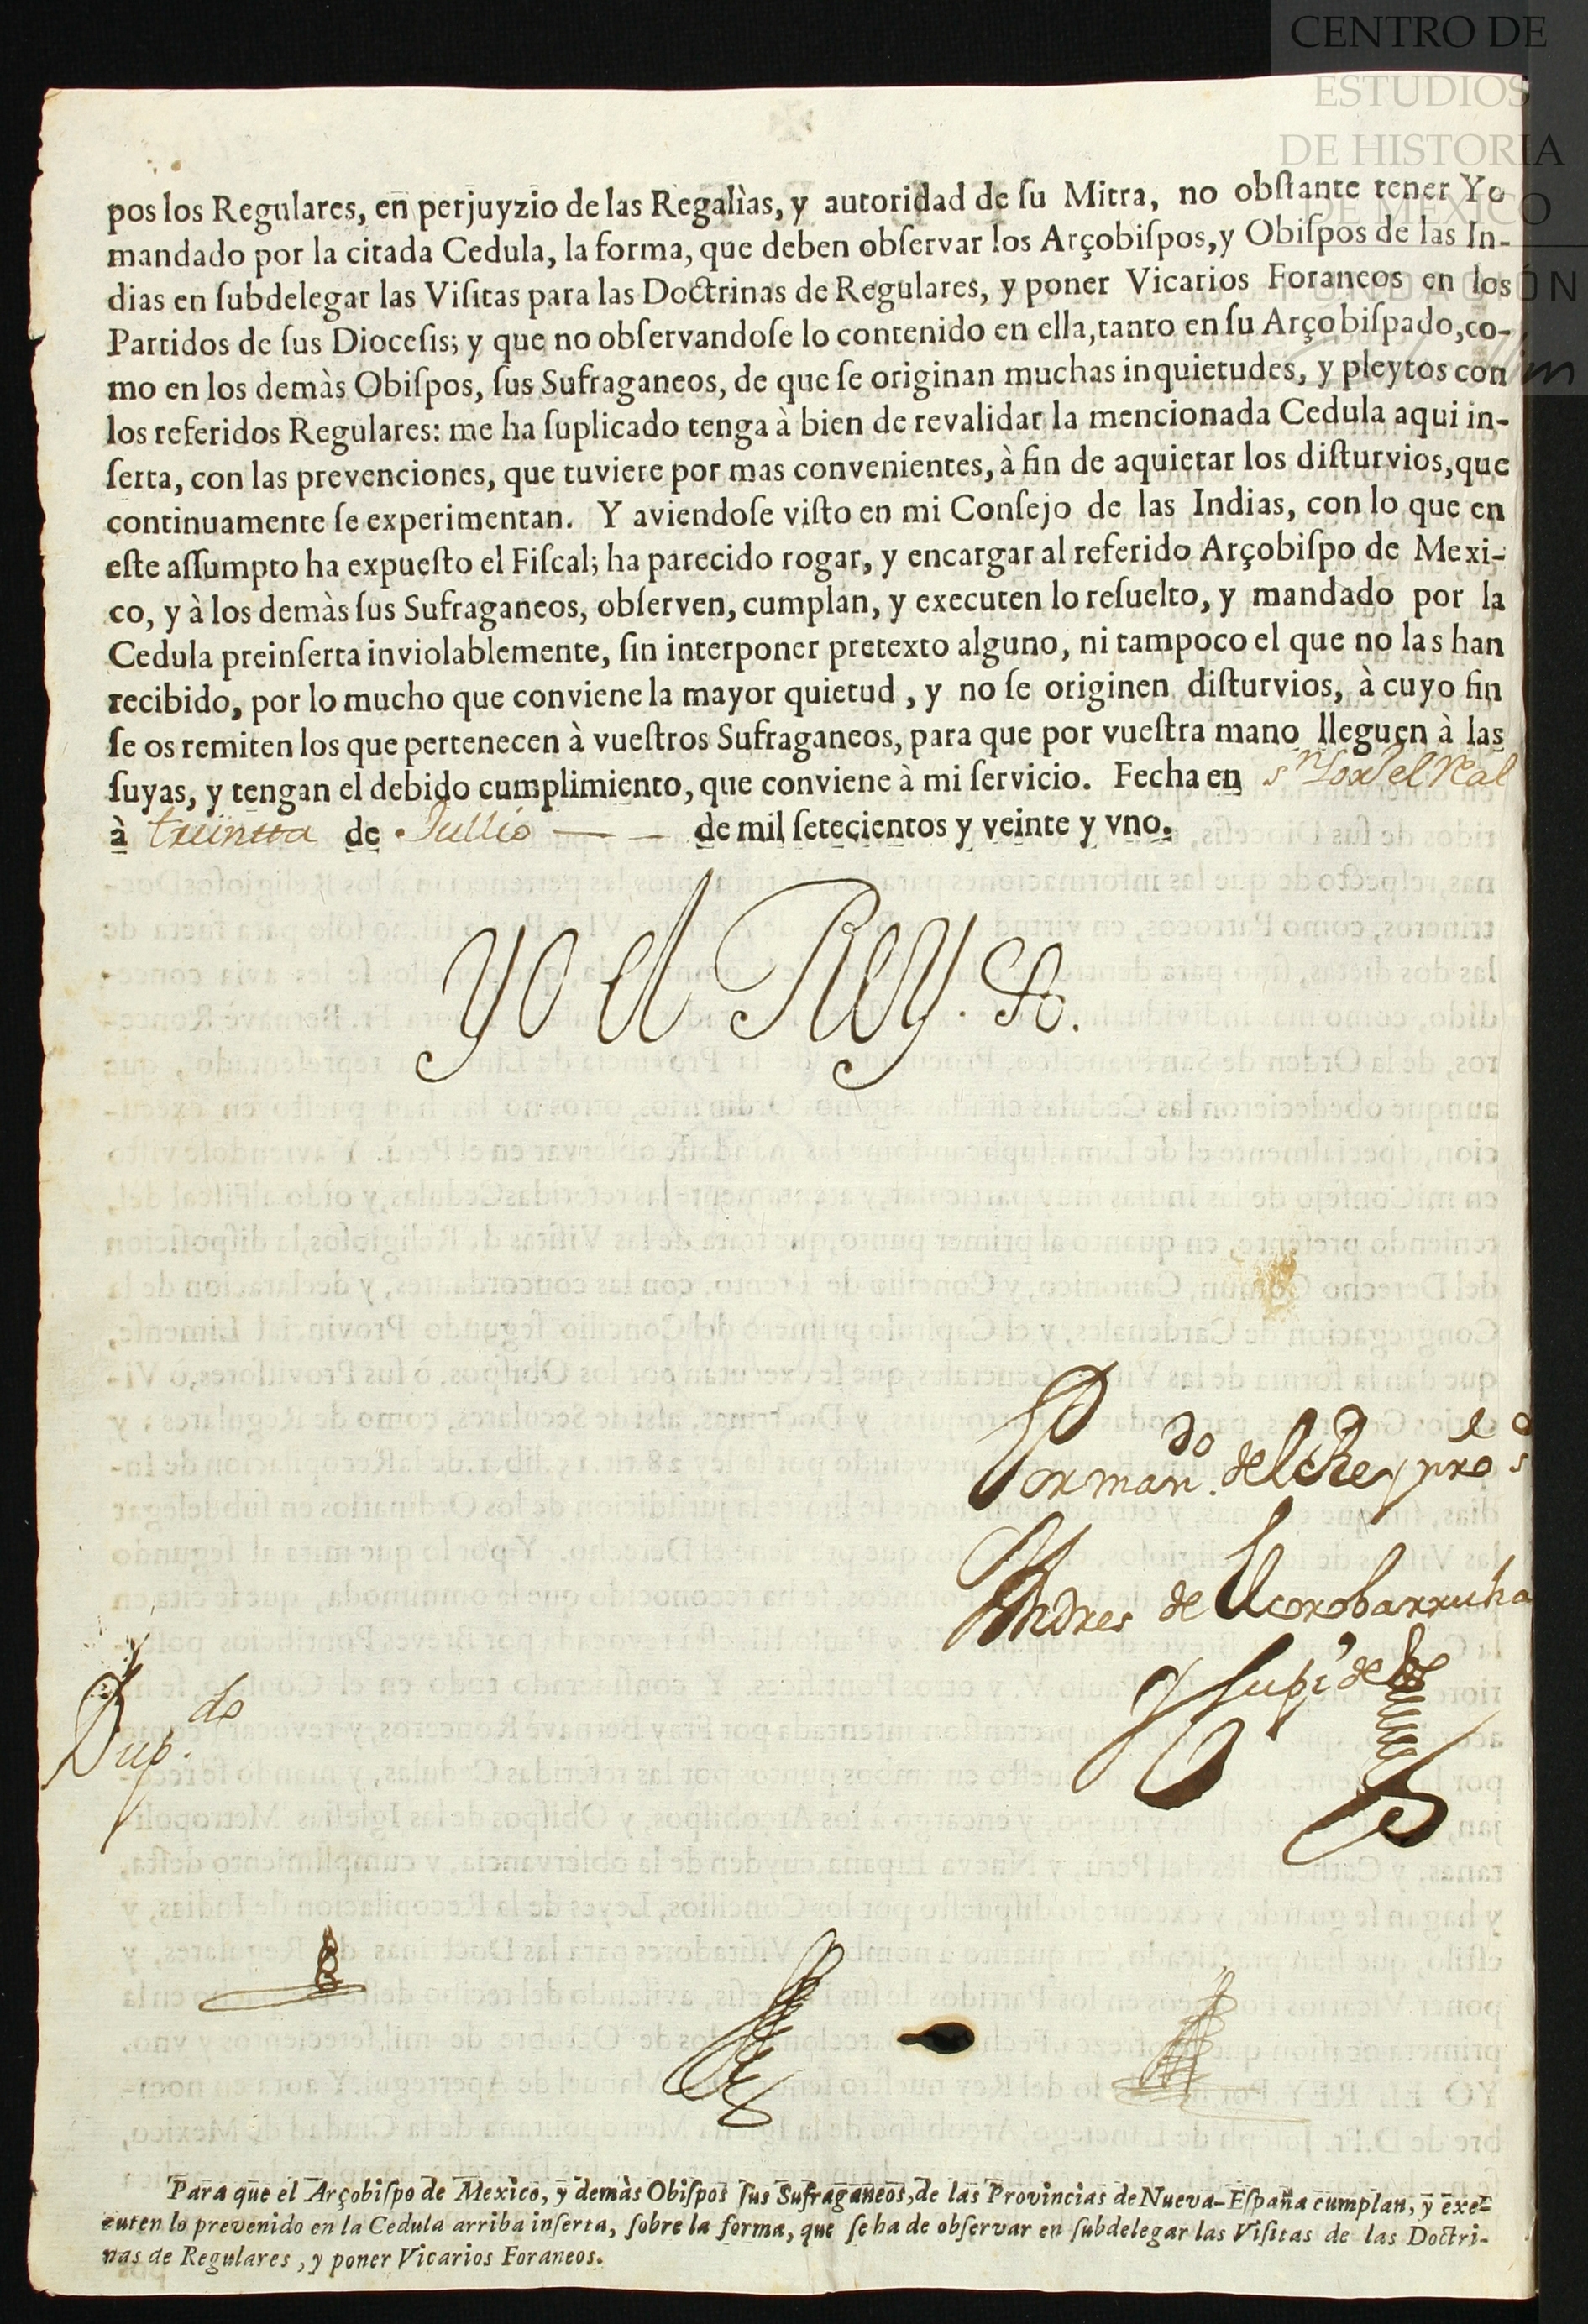 CENTRO DE
ESTUDIOS
DE HISTORIA
DE MEXICO
FUNDACIÓN
pos los Regulares, en perjuyzio de las Regalìas, y autoridad de ſu Mitra, no obſtante tener Yo
mandado por la citada Cedula, la forma, que deben obſervar los Arçobiſpos, y Obiſpos de las In-
dias en ſubdelegar las Viſitas para las Doctrinas de Regulares, y poner Vicarios Foraneos en los
Partidos de ſus Dioceſis; y que no obſervandoſe lo contenido en ella, tanto en ſu Arçobiſpado, co-
mo en los demàs Obiſpos, ſus Sufraganeos, de que ſe originan muchas inquietudes, y pleytos con
los referidos Regulares: me ha ſuplicado tenga à bien de revalidar la mencionada Cedula aqui in-
ſerta, con las prevenciones, que tuviere por mas convenientes, à fin de aquietar los diſturvios, que
continuamente ſe experimentan. Y aviendoſe viſto en mi Conſejo de las Indias, con lo que en
eſte aſſumpto ha expueſto el Fiſcal; ha parecido rogar, y encargar al referido Arçobiſpo de Mexi-
co, y à los demàs ſus Sufraganeos, obſerven, cumplan, y executen lo reſuelto, y mandado por la
Cedula preinſerta inviolablemente, ſin interponer pretexto alguno, ni tampoco el que no las han
recibido, por lo mucho que conviene la mayor quietud, y no ſe originen diſturvios, à cuyo fin
ſe os remiten los que pertenecen à vueſtros Sufraganeos, para que por vueſtra mano lleguen à las
ſuyas, y tengan el debido cumplimiento, que conviene à mi ſervicio. Fecha en Sn Lor.o el Real
à treintta de Jullio de mil ſetecientos y veinte y vno.
Yo el Rey.
Por man.do del Rey nro s.r
Andres de
Dup.do
Para que el Arçobiſpo de Mexico, y demàs Obiſpos ſus Sufraganeos, de las Provincias de Nueva-Eſpaña cumplan, y exe-
cuten lo prevenido en la Cedula arriba inſerta, ſobre la forma, que ſe ha de obſervar en ſubdelegar las Viſitas de las Doctri-
nas de Regulares, y poner Vicarios Foraneos.